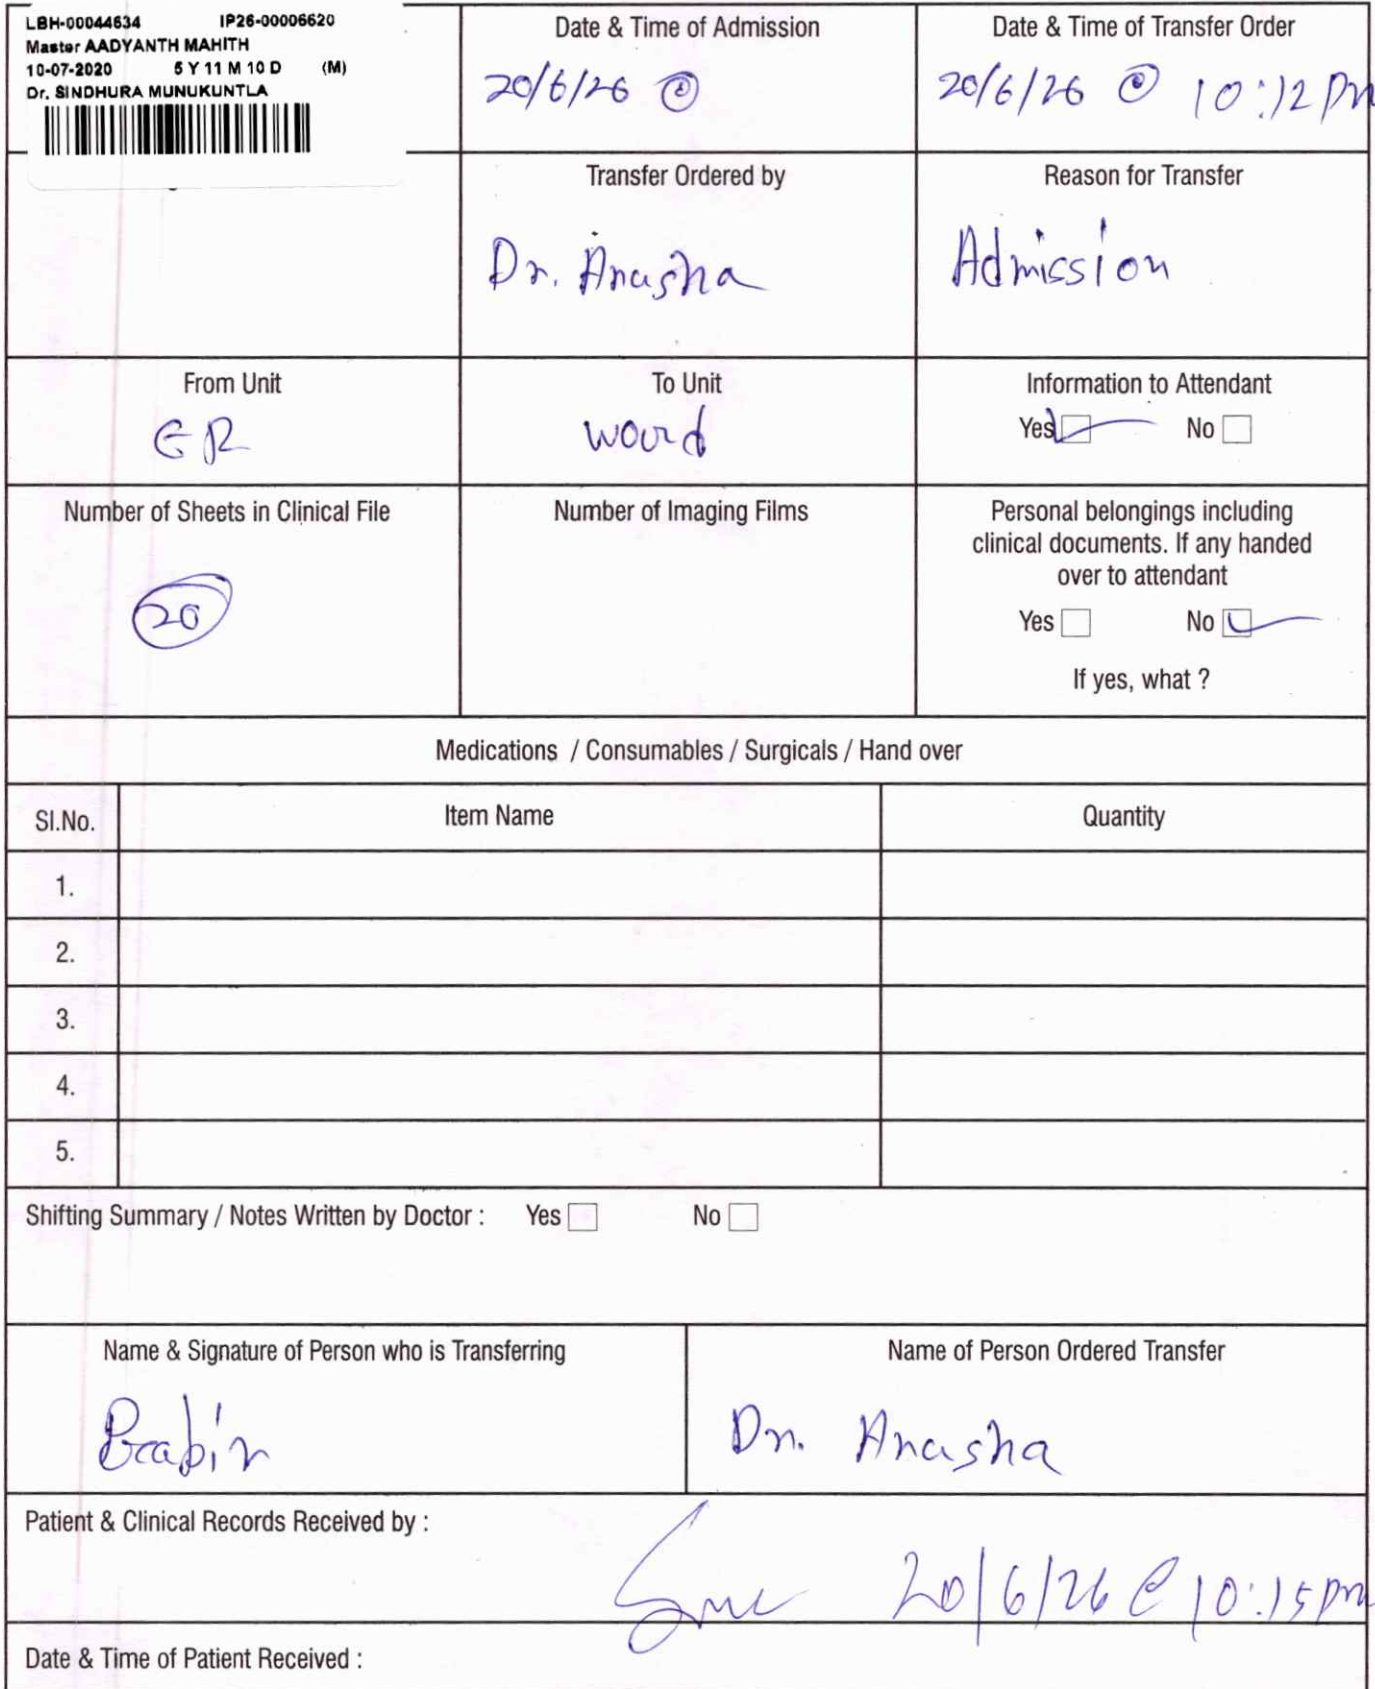 LBH-00044634 IP26-00006620
Master AADYANTH MAHITH
10-07-2020 5 Y 11 M 10 D (M)
Dr. SINDHURA MUNUKUNTLA
Date & Time of Admission
20/6/26 @
Date & Time of Transfer Order
20/6/26 @ 10:12 pm
Transfer Ordered by
Dr. Anusha
Reason for Transfer
Admission
From Unit
ER
To Unit
ward
Information to Attendant
Yes No
Number of Sheets in Clinical File
20
Number of Imaging Films
Personal belongings including
clinical documents. If any handed
over to attendant
Yes No
If yes, what ?
Medications / Consumables / Surgicals / Hand over
Sl.No. Item Name Quantity
1.
2.
3.
4.
5.
Shifting Summary / Notes Written by Doctor : Yes No
Name & Signature of Person who is Transferring
Prabir
Name of Person Ordered Transfer
Dr. Anusha
Patient & Clinical Records Received by :
20/6/26 @ 10:15 pm
Date & Time of Patient Received :